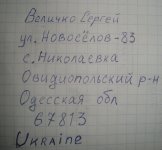 Величко Сергей
ул. Новосёлов-83
с. Николаевка
Овидиопольский р-н
Одесская обл
67813
Ukraine